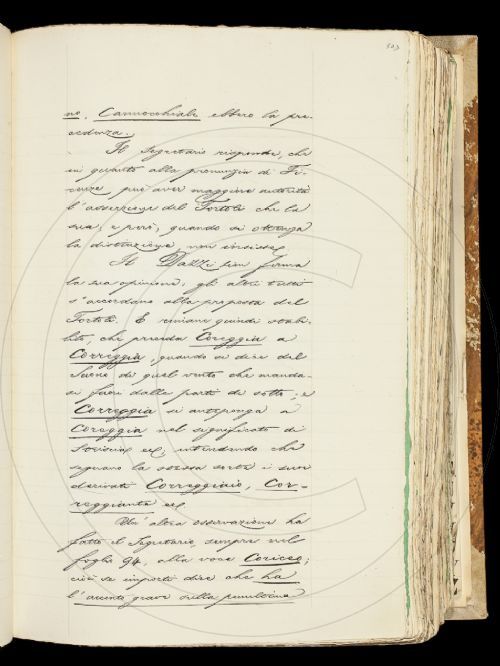 no, Cannocchiale ebbero la pre-
cedenza.
Il Segretario risponde, che
in quanto alla pronunzia di Fi-
renze può aver maggiore autorità
l'asserzione del Tortoli che la
sua; e però, quando si ottenga
la distinzione, non insiste.
Il Dazzi tien ferma
la sua opinione; gli altri tutti
s'accordano alla proposta del
Tortoli. E rimane quindi stabi-
lito, che preceda Coreggia a
Correggia, quando si dice del
Suono di quel vento che manda-
si fuori dalle parti di sotto; e
Correggia si anteponga a
Coreggia nel significato di
ec, intendendo che
seguano la stessa sorte i suoi
derivati Correggiaio, Cor-
reggiante ec.
Un'altra osservazione ha
fatto il Segretario, sempre nel
foglio 94, alla voce Coriceo;
cioè se importi dire che ha
l'accento grave sulla penultima